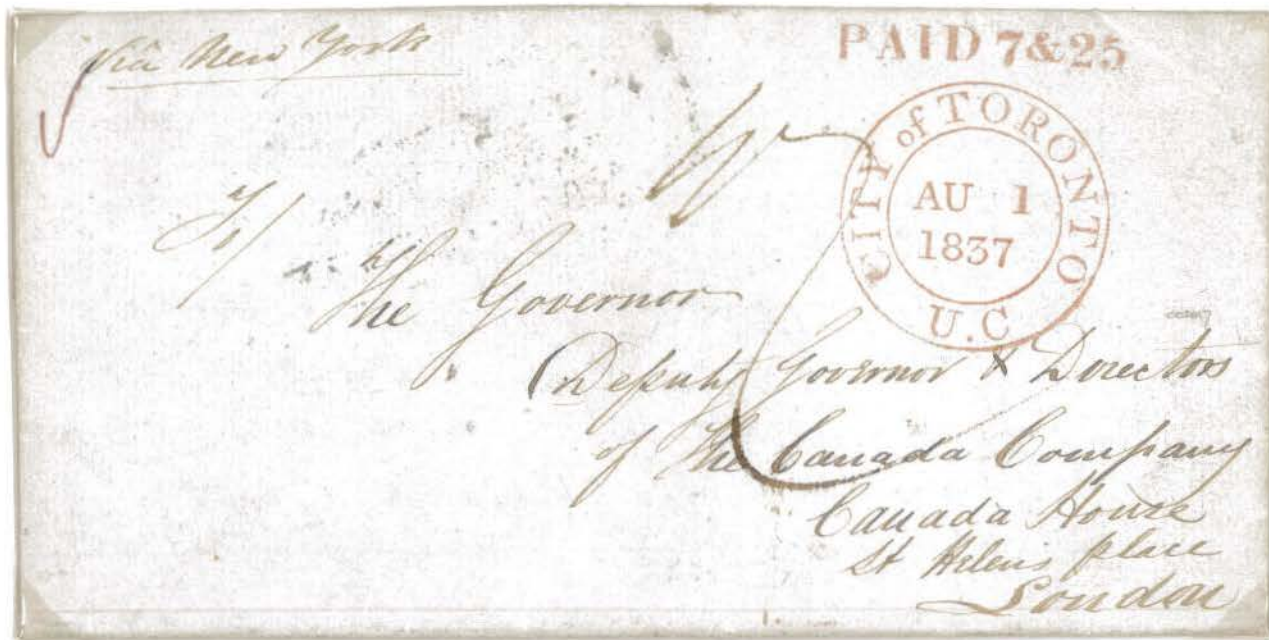 Via New York
PAID 7&25
CITY of TORONTO
AU 1
1837
U.C
To/
The Governor
Deputy Governor & Directors
of the Canada Company
Canada House
St Helens place
London